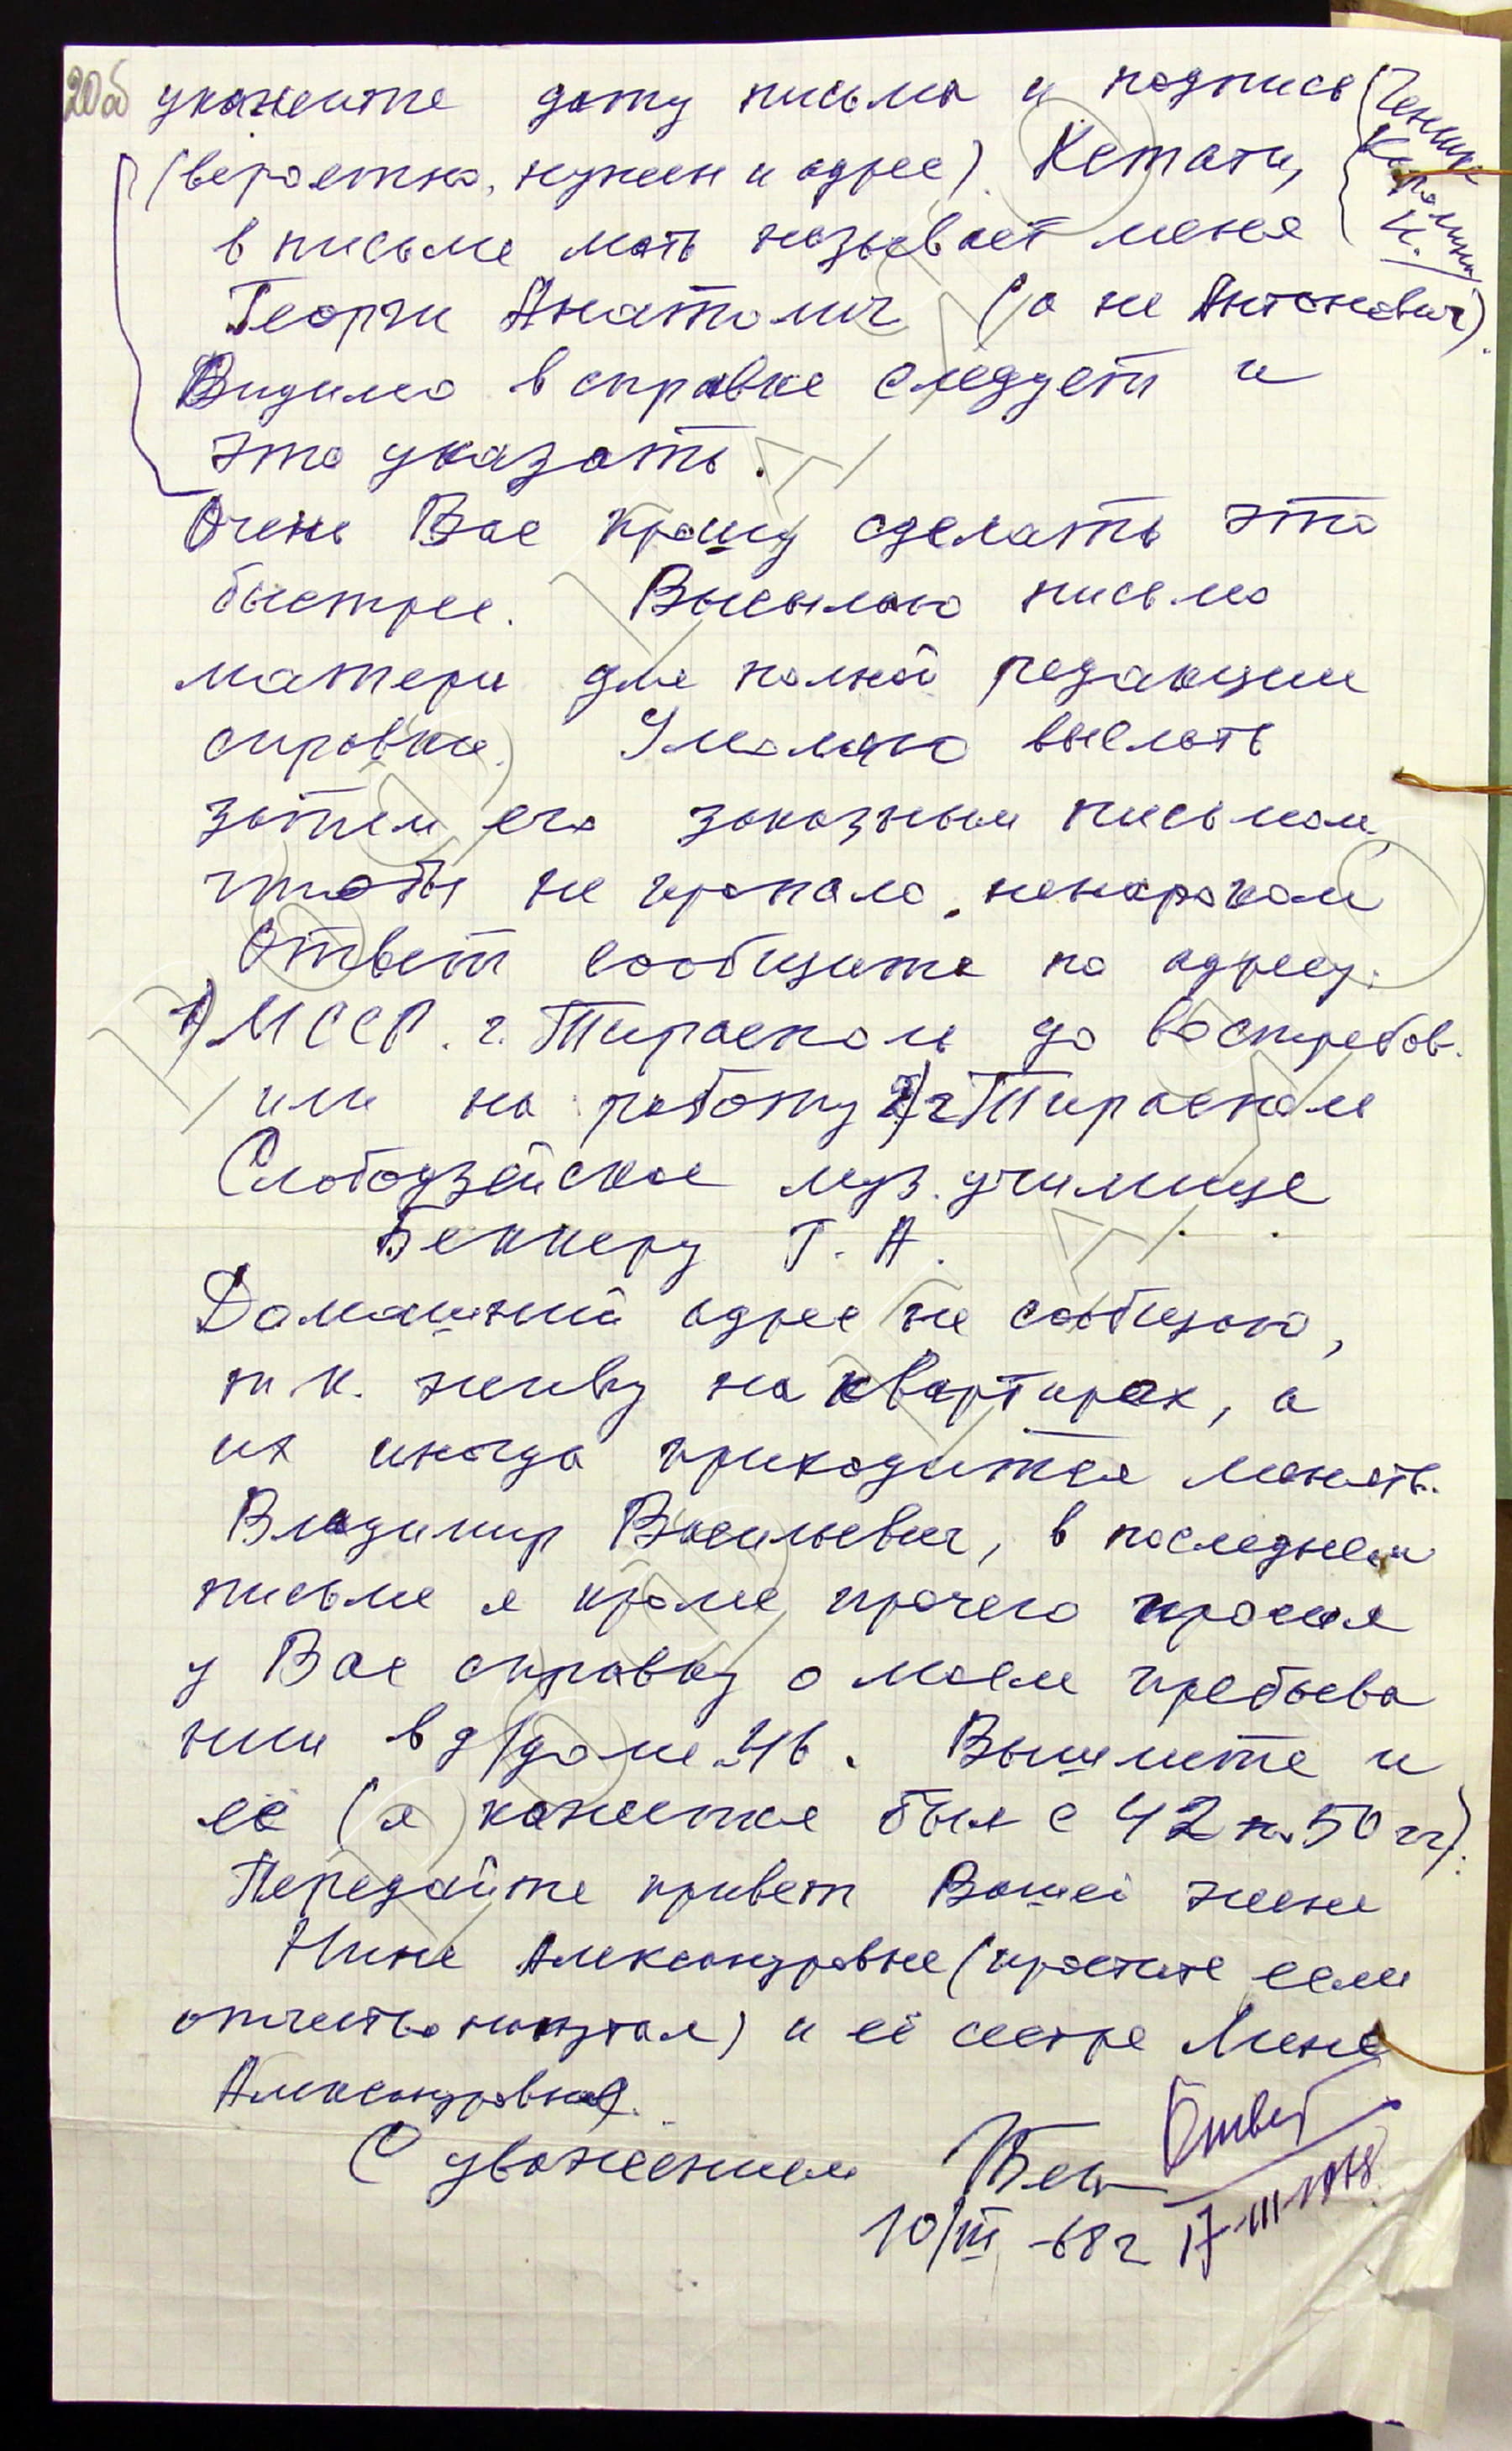 20об
укажите дату письма и подпись (Геник Каролина И.)
(вероятно, нужен и адрес). Кстати,
в письме мать называет меня
Георги Анатолич (а не Антонович).
Видимо в справке следует и
это указать.
Очень Вас прошу сделать это
быстрее. Высылаю письмо
матери для полной редакции
справки. Умоляю выслать
затем его заказным письмом,
чтобы не пропало ненароком
Ответ сообщите по адресу:
1) МССР. г. Тирасполь до востребов.
или на работу 2) г Тирасполь
Слободзейское муз. училище
Беккеру Г. А.
Домашний адрес не сообщаю,
т к. живу на квартирах, а
их иногда приходится менять.
Владимир Васильевич, в последнем
письме я кроме прочего просил
у Вас справку о моем пребыва
нии в д/доме 46. Вышлите и
её (я кажется был с 42 по 50 гг).
Передайте привет Вашей жене
Нине Александровне (простите если
отчество попутал) и её сестре Лине
Александровне.
С уважением Бек
10/III -68 г
Ответ
17-III-1968